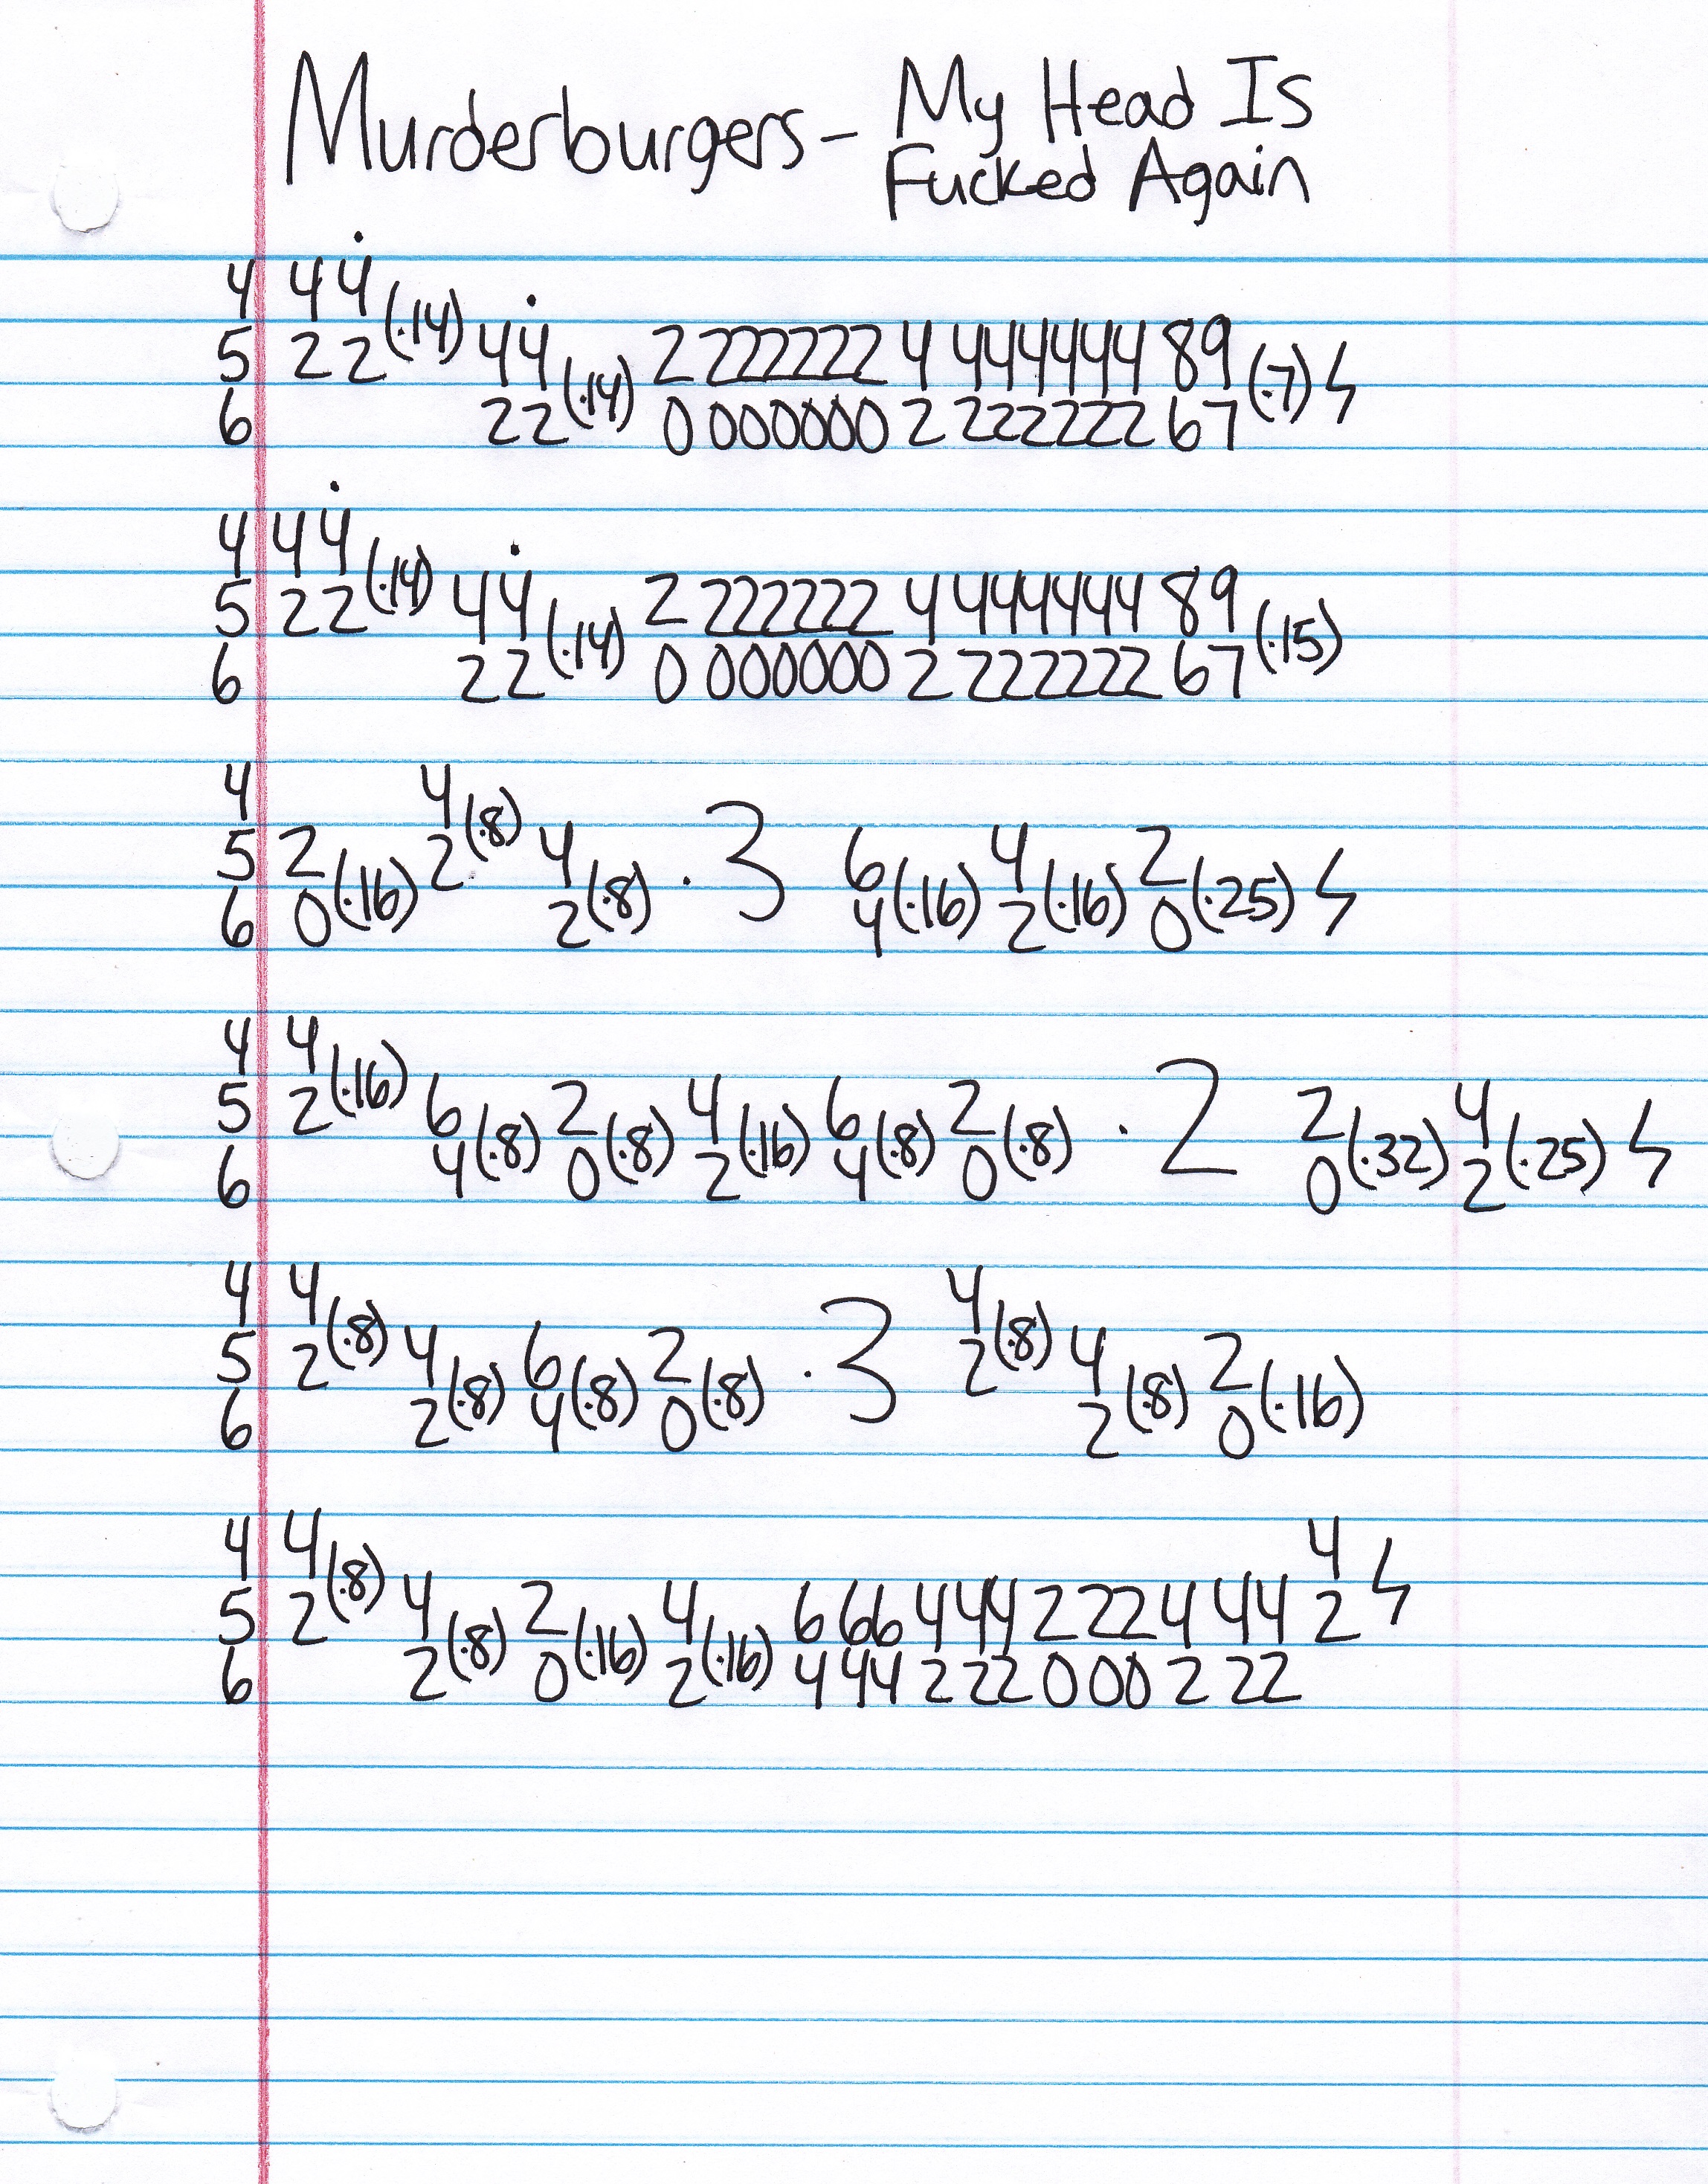 Murderburgers - My Head Is
Fucked Again
4 44 44
5 22 22 (·14) 44 2 222222 4 444444 89
6 22 (·14) 0 000000 2 222222 67 (·7) ϟ
4 44
5 22 (·14) 44 2 222222 4 444444 89
6 22 (·14) 0 000000 2 222222 67 (·15)
4 4
5 2 2 (·8) 4 · 3 6 4 2
6 0 (·16) 2 (·8) 4 (·16) 2 (·16) 0 (·25) ϟ
4 4
5 2 (·16) 6 2 4 6 2 · 2 2 4
6 4 (·8) 0 (·8) 2 (·16) 4 (·8) 0 (·8) 0 (·32) 2 (·25) ϟ
4 4 4
5 2 (·8) 4 6 2 · 3 2 (·8) 4 2
6 2 (·8) 4 (·8) 0 (·8) 2 (·8) 0 (·16)
4 4 4
5 2 (·8) 4 2 4 6 66 4 44 2 22 4 44 2 ϟ
6 2 (·8) 0 (·16) 2 (·16) 4 44 2 22 0 00 2 22